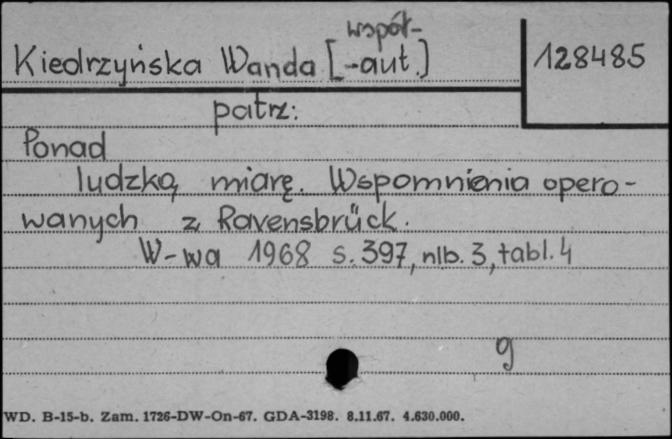 współ-
Kiedrzyńska Wanda [-aut.]
128485
patrz:
Ponad
ludzką miarę. Wspomnienia opero-
wanych z Ravensbrück.
W-wa 1968 s. 397, nlb. 3, tabl. 4
g
WD. B-15-b. Zam. 1726-DW-On-67. GDA-3198. 8.11.67. 4.630.000.